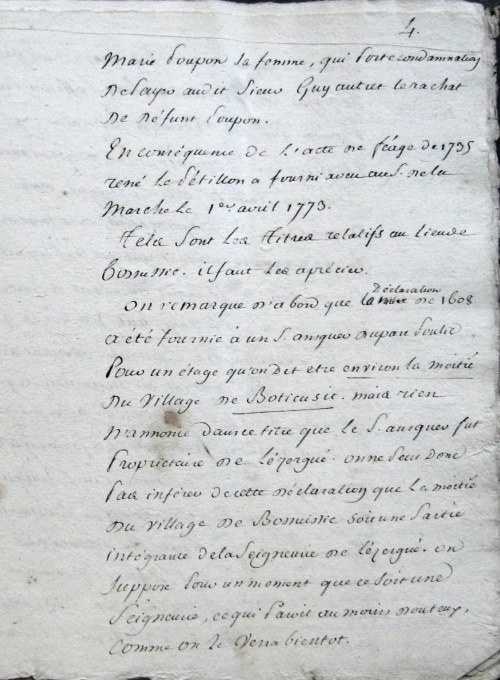 4.
Marie Poupon sa femme, qui porte condamnation
de payer audit Sieur Guy autret le rachat
de défunt Poupon.
En conséquence de l'acte de féage de 1735
rené le Pétillon a fourni aveu au S. de la
Marche le 1er avril 1773.
Tels sont les titres relatifs au lieu de
il faut les aprécier.
on remarque d'abord que la Déclaration de 1608
a été fournie à un S. ansquer
Pour un étage qu'on dit etre environ la moitié
du village de Boticusit. mais rien
n'annonce dans ce titre que le S. ansquer fut
Propriétaire de Lézergué. on ne peut donc
Pas inférer de cette déclaration que la moitié
du village de soit une Partie
intégrante de la Seigneurie de Lézergué. on
suppose Pour un moment que ce soit une
Seigneurie, ce qui Paroit au moins douteux,
comme on le verra bientot.